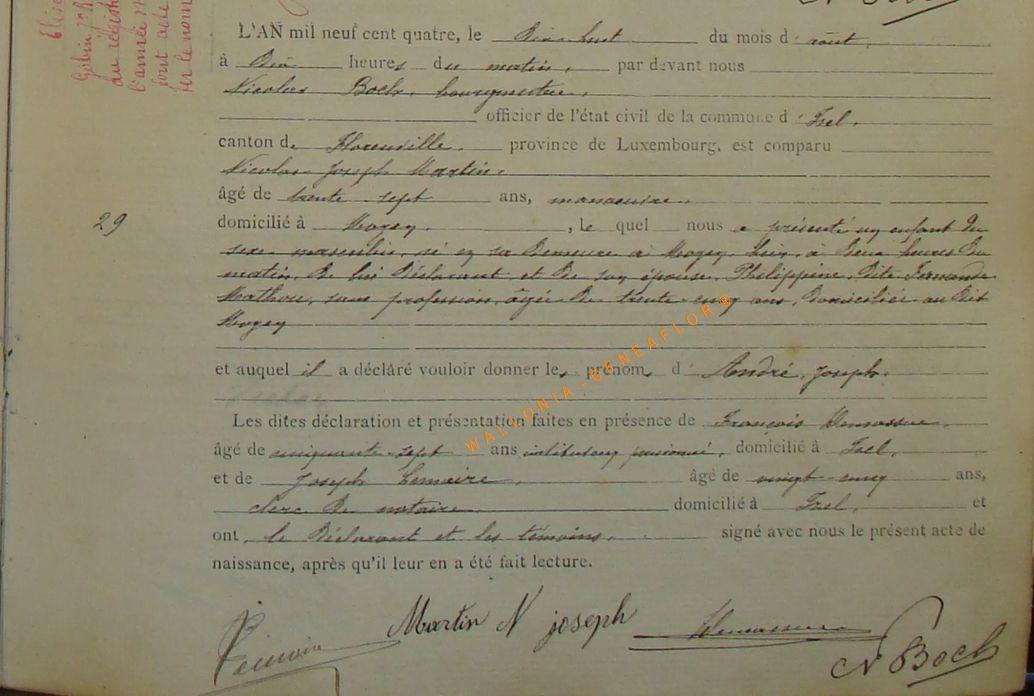 N Boch
Elise
Gobin
au regist
l'année
font acte
sur le nom
L'AN mil neuf cent quatre, le Dix huit du mois d'août,
à Dix heures du matin, par devant nous
Nicolas Boch, bourgmestre,
officier de l'état civil de la commune d'Izel,
canton de Florenville, province de Luxembourg, est comparu
Nicolas Joseph Martin,
âgé de trente sept ans, manoeuvre,
29
domicilié à Moyen, le quel nous a présenté un enfant du
sexe masculin, né en sa Demeure à Moyen, hier, à Deux heures Du
matin, De lui Déclarant et De son épouse, Philippine, Dite Fernande
Mathou, sans profession, âgée De trente-cinq ans, Domiciliée au Dit
Moyen
et auquel il a déclaré vouloir donner les prénoms d'André, Joseph.
Les dites déclaration et présentation faites en présence de François
âgé de cinquante-sept ans instituteur pensionné, domicilié à Izel,
et de Joseph Lemaire, âgé de vingt-cinq ans,
clerc De notaire domicilié à Izel, et
ont, le Déclarant et les témoins, signé avec nous le présent acte de
naissance, après qu'il leur en a été fait lecture.
Martin N joseph
Lemaire
N Boch
WALLONIA-GENEAFLOR©